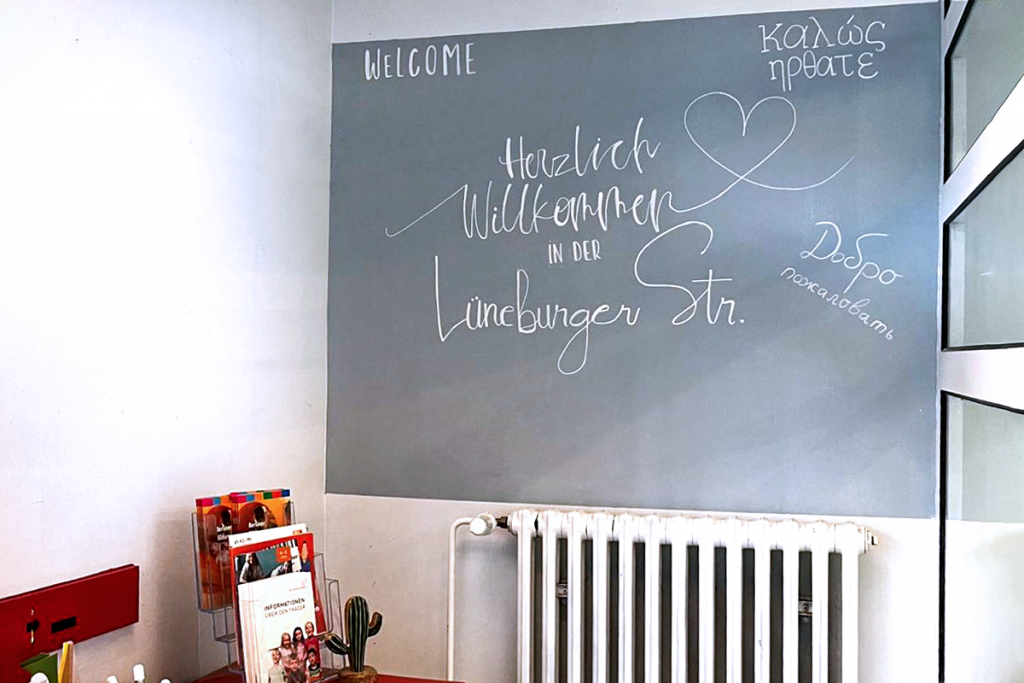 WELCOME
καλώς
ηρθατε
Herzlich
Willkommen
IN DER
Lüneburger Str.
Добро
пожаловать
INFORMATIONEN
ÜBER DEN TRÄGER